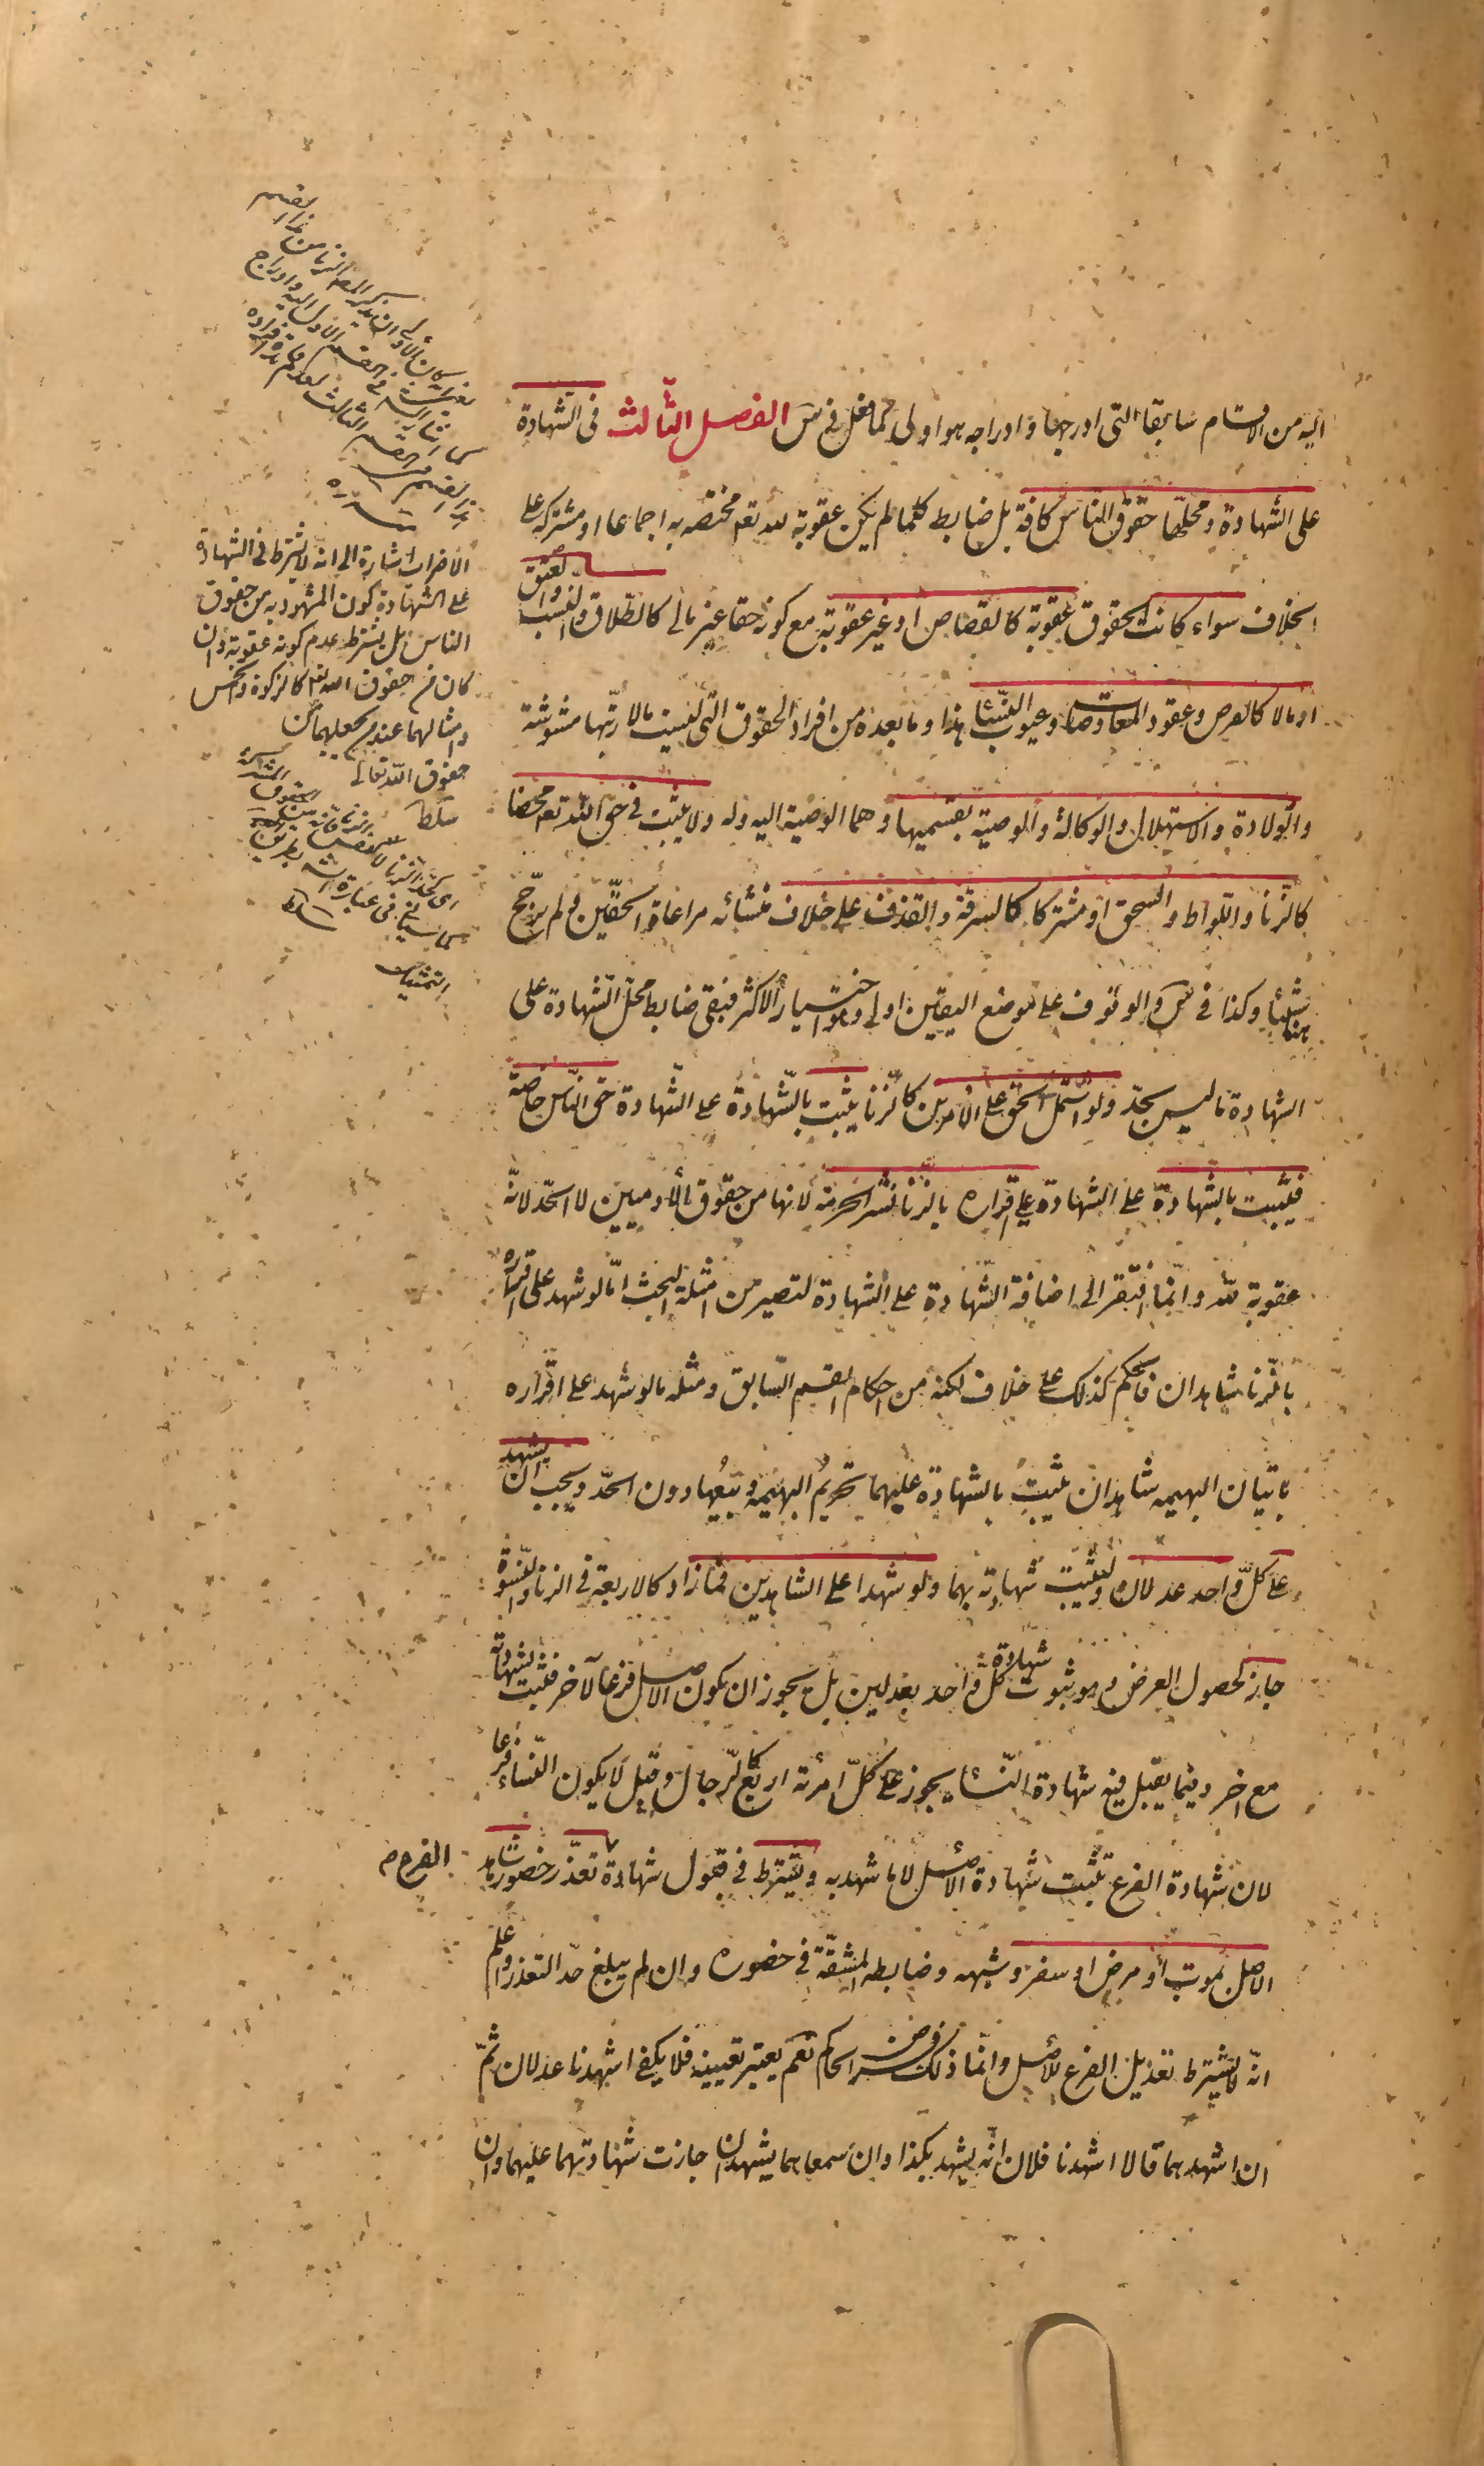 اليه من الاقسام سابقا التى ادرجها و ادراجه هو اولى كما فعل فى س الفصل الثالث فى الشهادة
على الشهادة و محلها حقوق الناس كافة بل ضابط كلما لم يكن عقوبة لله تعم مختصه به اجماعا او مشتركه على
الخلاف سواء كانت الحقوق عقوبة كالقصاص او غير عقوبة مع كونه حقا غير مالى كالطلاق والنسب والعتق
او مالا كالقرض و عقود المعاوضات و عيوب النساء هذا و ما بعده من افراد الحقوق التى ليست مالا رتبها مشوشة
والولادة والاستهلال والوكالة والوصية بقسميها و هما الوصية اليه وله ولا يثبت فى حق الله تعم محضا
كالزنا واللواط والسحق او مشتركا كالسرقة والقذف على خلاف منشائه مراعاة الحقين و لم يرجح
هنا شيئا وكذا فى س والوقوف على موضع اليقين اولى و هو اختيار الاكثر فبقى ضابط محل الشهادة على
الشهادة ما ليس بحد ولو اشتمل الحق على الامرين كالزنا يثبت بالشهادة على الشهادة حق الناس خاصة
فيثبت بالشهادة على الشهادة على اقراره بالزنا نشر الحرمة لانها من حقوق الآدميين لا الحد لانه
عقوبة لله وانما افتقر الى اضافة الشهادة على الشهادة لتصير من امثلة البحث اما لو شهد على اقراره
بالزنا شاهدان فالحكم كذلك على خلاف لكنه من احكام القسم السابق ومثله ما لو شهد على اقراره
باتيان البهيمه شاهدان يثبت بالشهادة عليهما تحريم البهيمة و بيعها دون الحد ويجب ان يشهد
على كل واحد عدلان ليثبت شهادته بهما ولو شهدا على الشاهدين فما زاد كالاربعة فى الزنا والنسوة
جاز لحصول الغرض و هو ثبوت شهادة كل واحد بعدلين بل يجوز ان يكون الاصل فرعا لآخر فتثبت بشهادته
مع اخر وفيما يقبل فيه شهادة النساء يجوز على كل امرئة اربع كالرجال وقيل لا يكون النساء فرعا
لان شهادة الفرع تثبت شهادة الاصل لا ما شهد به ويشترط فى قبول شهادة الفرع تعذر حضور شاهد
الاصل بموت او مرض او سفر وشبهه وضابطه المشقة فى حضوره وان لم يبلغ حد التعذر واعلم
انه لا يشترط تعديل الفرع للاصل وانما ذلك فرض الحاكم نعم يعتبر تعيينه فلا يكفى اشهدنا عدلان ثم
ان اشهدهما قالا اشهدنا فلان انه يشهد بكذا وان سمعاهما يشهدان جازت شهادتهما عليهما وان
الاضراب اشارة الى انه لا يشترط فى الشهادة
على الشهادة كون المشهود به من حقوق
الناس بل يشترط عدم كونه عقوبة وان
كان من حقوق الله تعم كالزكوة والخمس
وامثالهما عند من جعلهما من
حقوق الله تعالى
سلطا